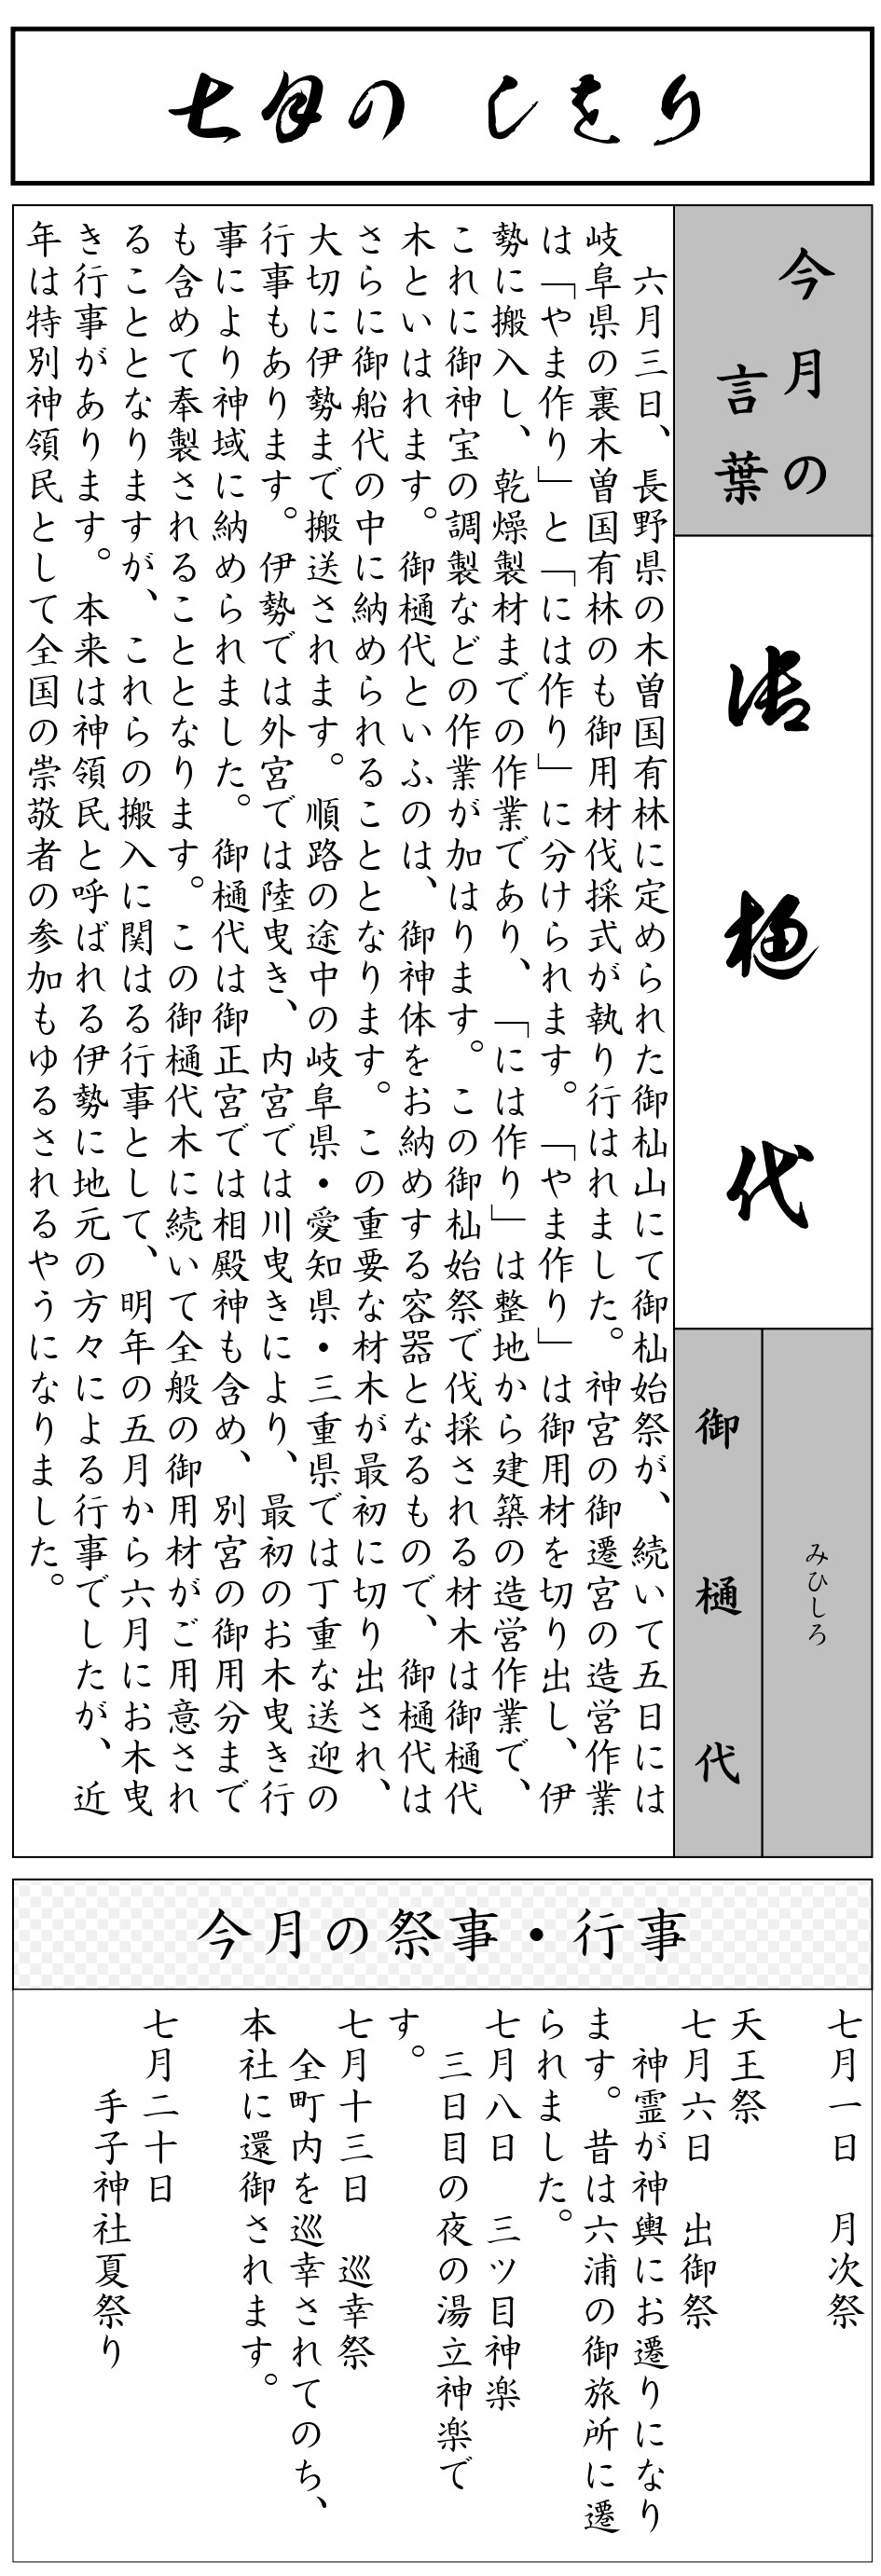 七月の しをり
今月の
言葉
御樋代
みひしろ
御樋代
六月三日、長野県の木曽国有林に定められた御杣山にて御杣始祭が、続いて五日には
岐阜県の裏木曽国有林のも御用材伐採式が執り行はれました。神宮の御遷宮の造営作業
は「やま作り」と「には作り」に分けられます。「やま作り」は御用材を切り出し、伊
勢に搬入し、乾燥製材までの作業であり、「には作り」は整地から建築の造営作業で、
これに御神宝の調製などの作業が加はります。この御杣始祭で伐採される材木は御樋代
木といはれます。御樋代といふのは、御神体をお納めする容器となるもので、御樋代は
さらに御船代の中に納められることとなります。この重要な材木が最初に切り出され、
大切に伊勢まで搬送されます。順路の途中の岐阜県・愛知県・三重県では丁重な送迎の
行事もあります。伊勢では外宮では陸曳き、内宮では川曳きにより、最初のお木曳き行
事により神域に納められました。御樋代は御正宮では相殿神も含め、別宮の御用分まで
も含めて奉製されることとなります。この御樋代木に続いて全般の御用材がご用意され
ることとなりますが、これらの搬入に関はる行事として、明年の五月から六月にお木曳
き行事があります。本来は神領民と呼ばれる伊勢に地元の方々による行事でしたが、近
年は特別神領民として全国の崇敬者の参加もゆるされるやうになりました。
今月の祭事・行事
七月一日 月次祭
天王祭
七月六日 出御祭
神霊が神輿にお遷りになり
ます。昔は六浦の御旅所に遷
られました。
七月八日 三ツ目神楽
三日目の夜の湯立神楽で
す。
七月十三日 巡幸祭
全町内を巡幸されてのち、
本社に還御されます。
七月二十日
手子神社夏祭り